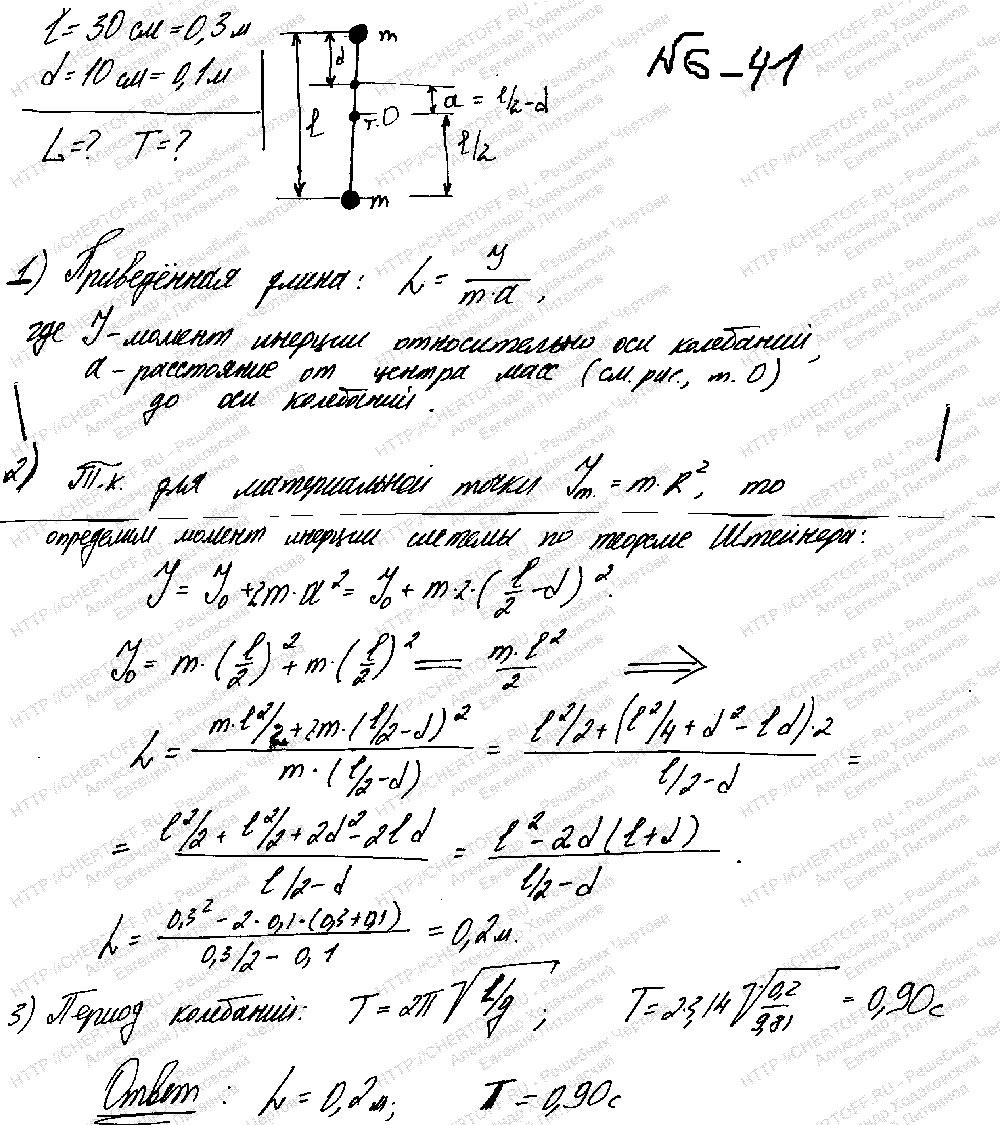 ℓ = 30 см = 0,3 м
d = 10 см = 0,1 м
L = ? T = ?
m
d
a = ℓ/2 - d
т. O
ℓ
ℓ/2
m
№6-41
1) Приведённая длина: L = J / (m·a),
где J - момент инерции относительно оси колебаний,
a - расстояние от центра масс (см. рис., т. O)
до оси колебаний.
2) Т.к. для материальной точки Jт. = m·R², то
определим момент инерции системы по теореме Штейнера:
J = J₀ + 2m·a² = J₀ + m·2·(ℓ/2 - d)².
J₀ = m·(ℓ/2)² + m·(ℓ/2)² = m·ℓ²/2 ⟹
L = (m·ℓ²/2 + 2m·(ℓ/2 - d)²) / (m·(ℓ/2 - d)) = (ℓ²/2 + (ℓ²/4 + d² - ℓd)·2) / (ℓ/2 - d) =
= (ℓ²/2 + ℓ²/2 + 2d² - 2ℓd) / (ℓ/2 - d) = (ℓ² - 2d(ℓ + d)) / (ℓ/2 - d).
L = (0,3² - 2·0,1·(0,3 + 0,1)) / (0,3/2 - 0,1) = 0,2 м.
3) Период колебаний: T = 2π√(ℓ/g); T = 2·3,14√(0,2/9,81) = 0,90 с
Ответ: L = 0,2 м; T = 0,90 с
HTTP://CHERTOFF.RU - Решебник Чертова
Александр Ходаковский
Евгений Литвинов